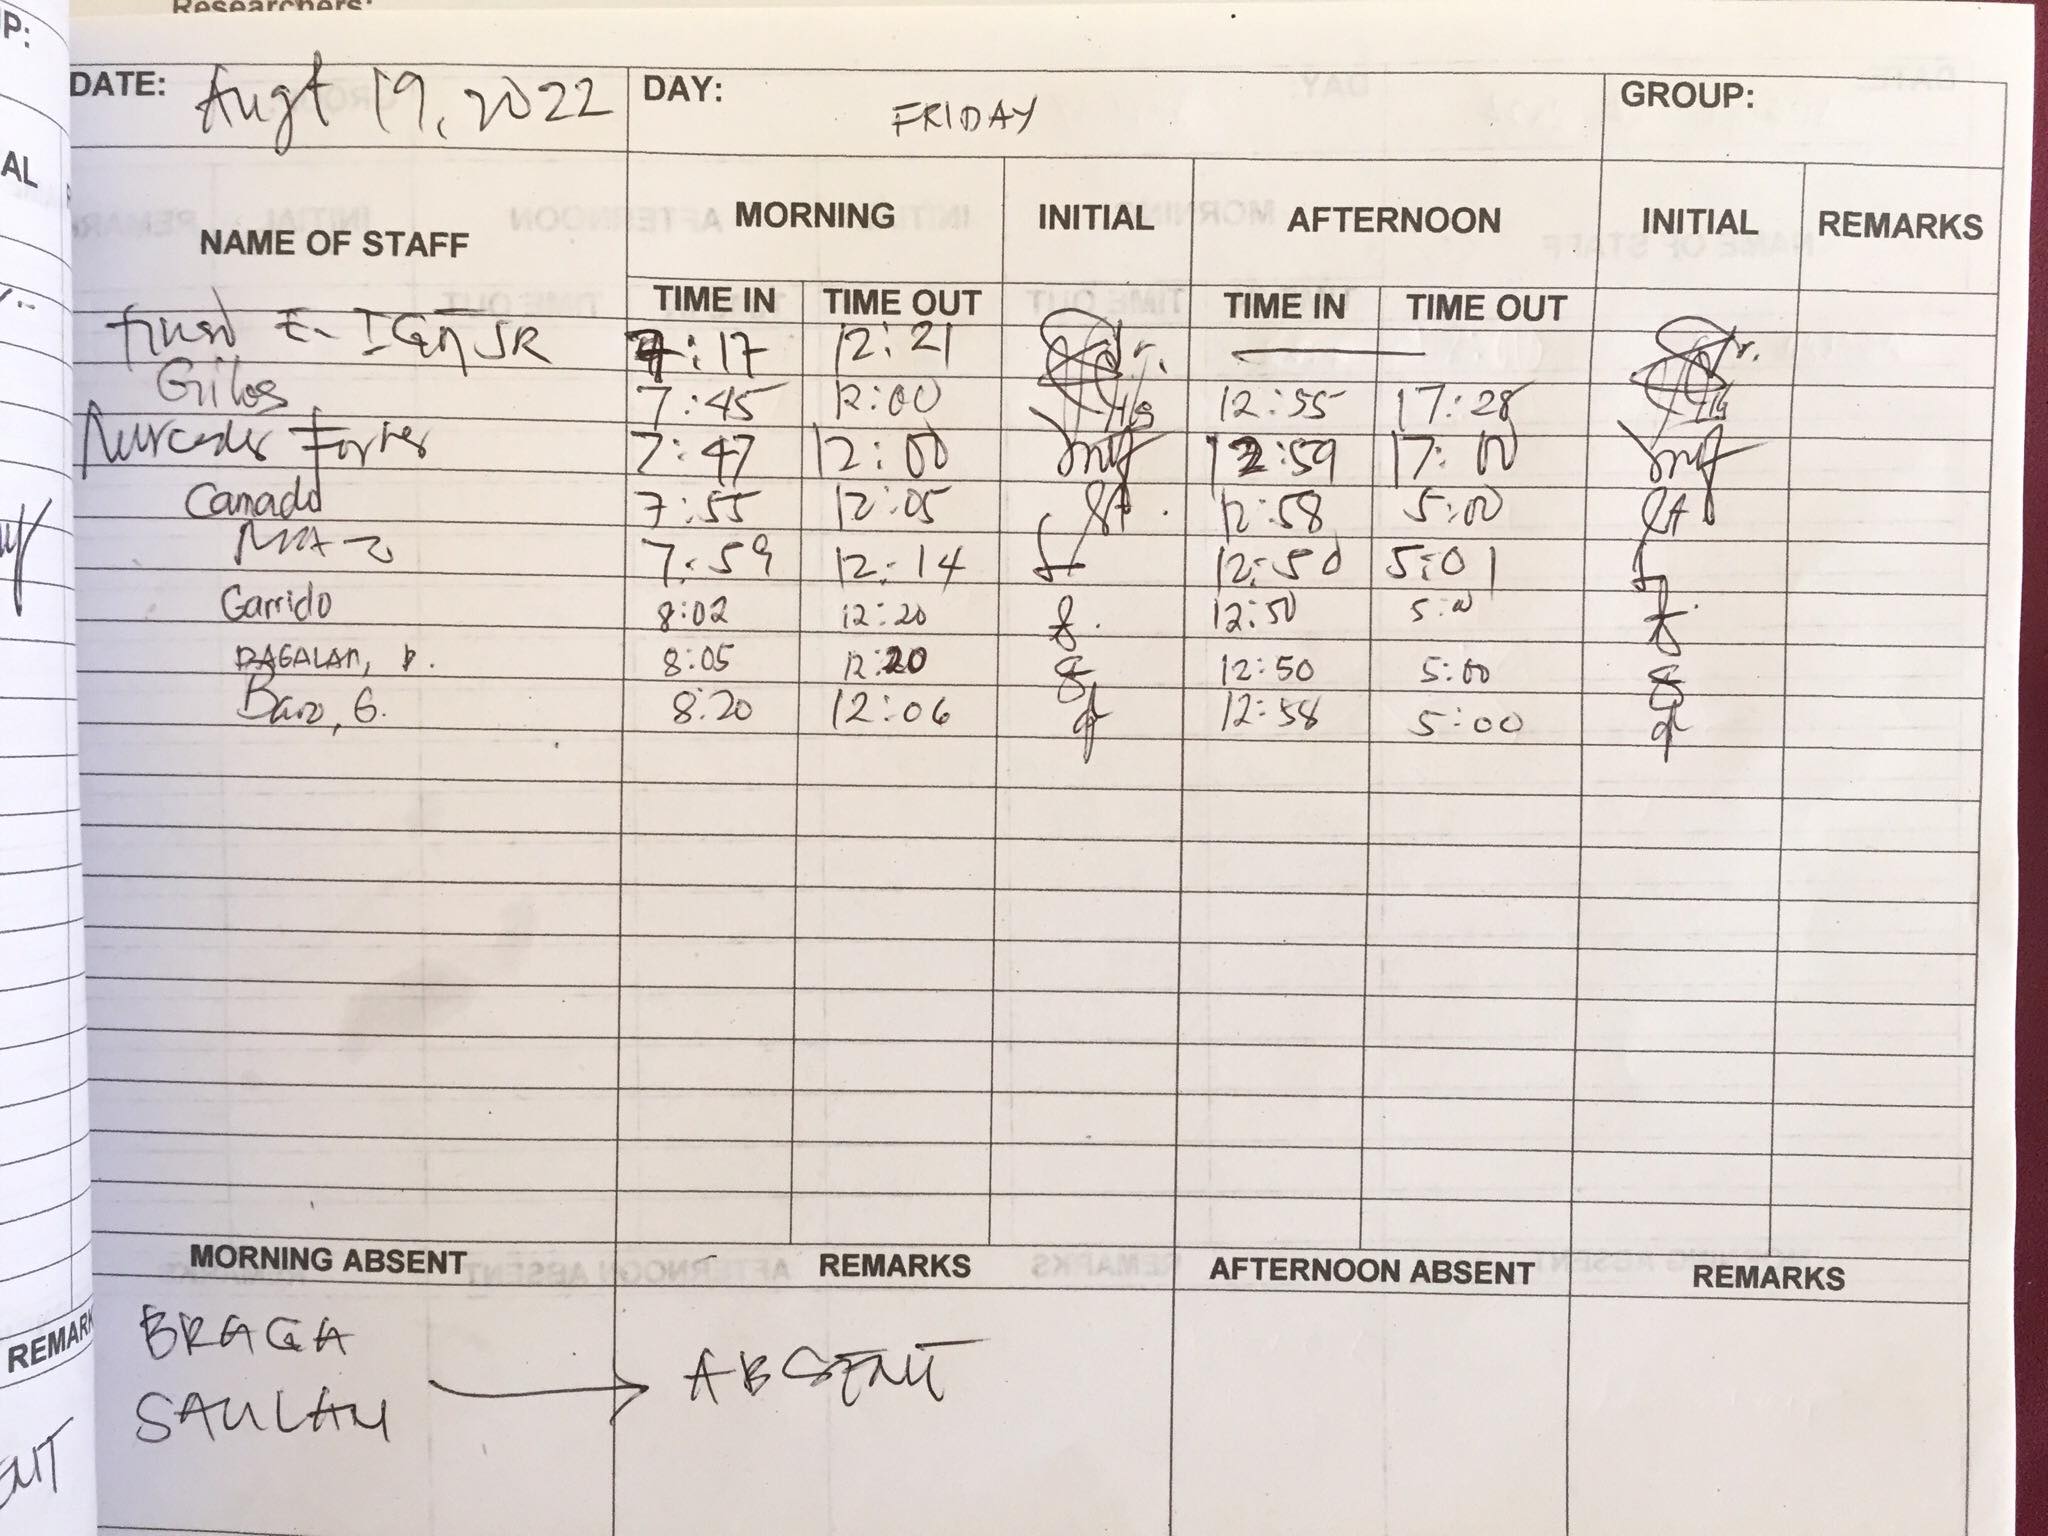 Researchers:
DATE: Augt 19, 2022 DAY: FRIDAY GROUP:
NAME OF STAFF MORNING INITIAL AFTERNOON INITIAL REMARKS
TIME IN TIME OUT TIME IN TIME OUT
E. IGA JR 7:17 12:21 Jr. — Jr.
Gilos 7:45 12:00 12:55 17:28
Mercedes Fortes 7:47 12:00 mf 12:59 17:00 mf
Camado 7:55 12:05 12:58 5:00
7:59 12:14 12:50 5:01
Garrido 8:02 12:20 12:50 5:00
DAGALAN, 8:05 12:20 12:50 5:00
Baro, G. 8:20 12:06 12:58 5:00
MORNING ABSENT REMARKS AFTERNOON ABSENT REMARKS
BRAGA
SAULAN → ABSENT
P:
AL
REMARK